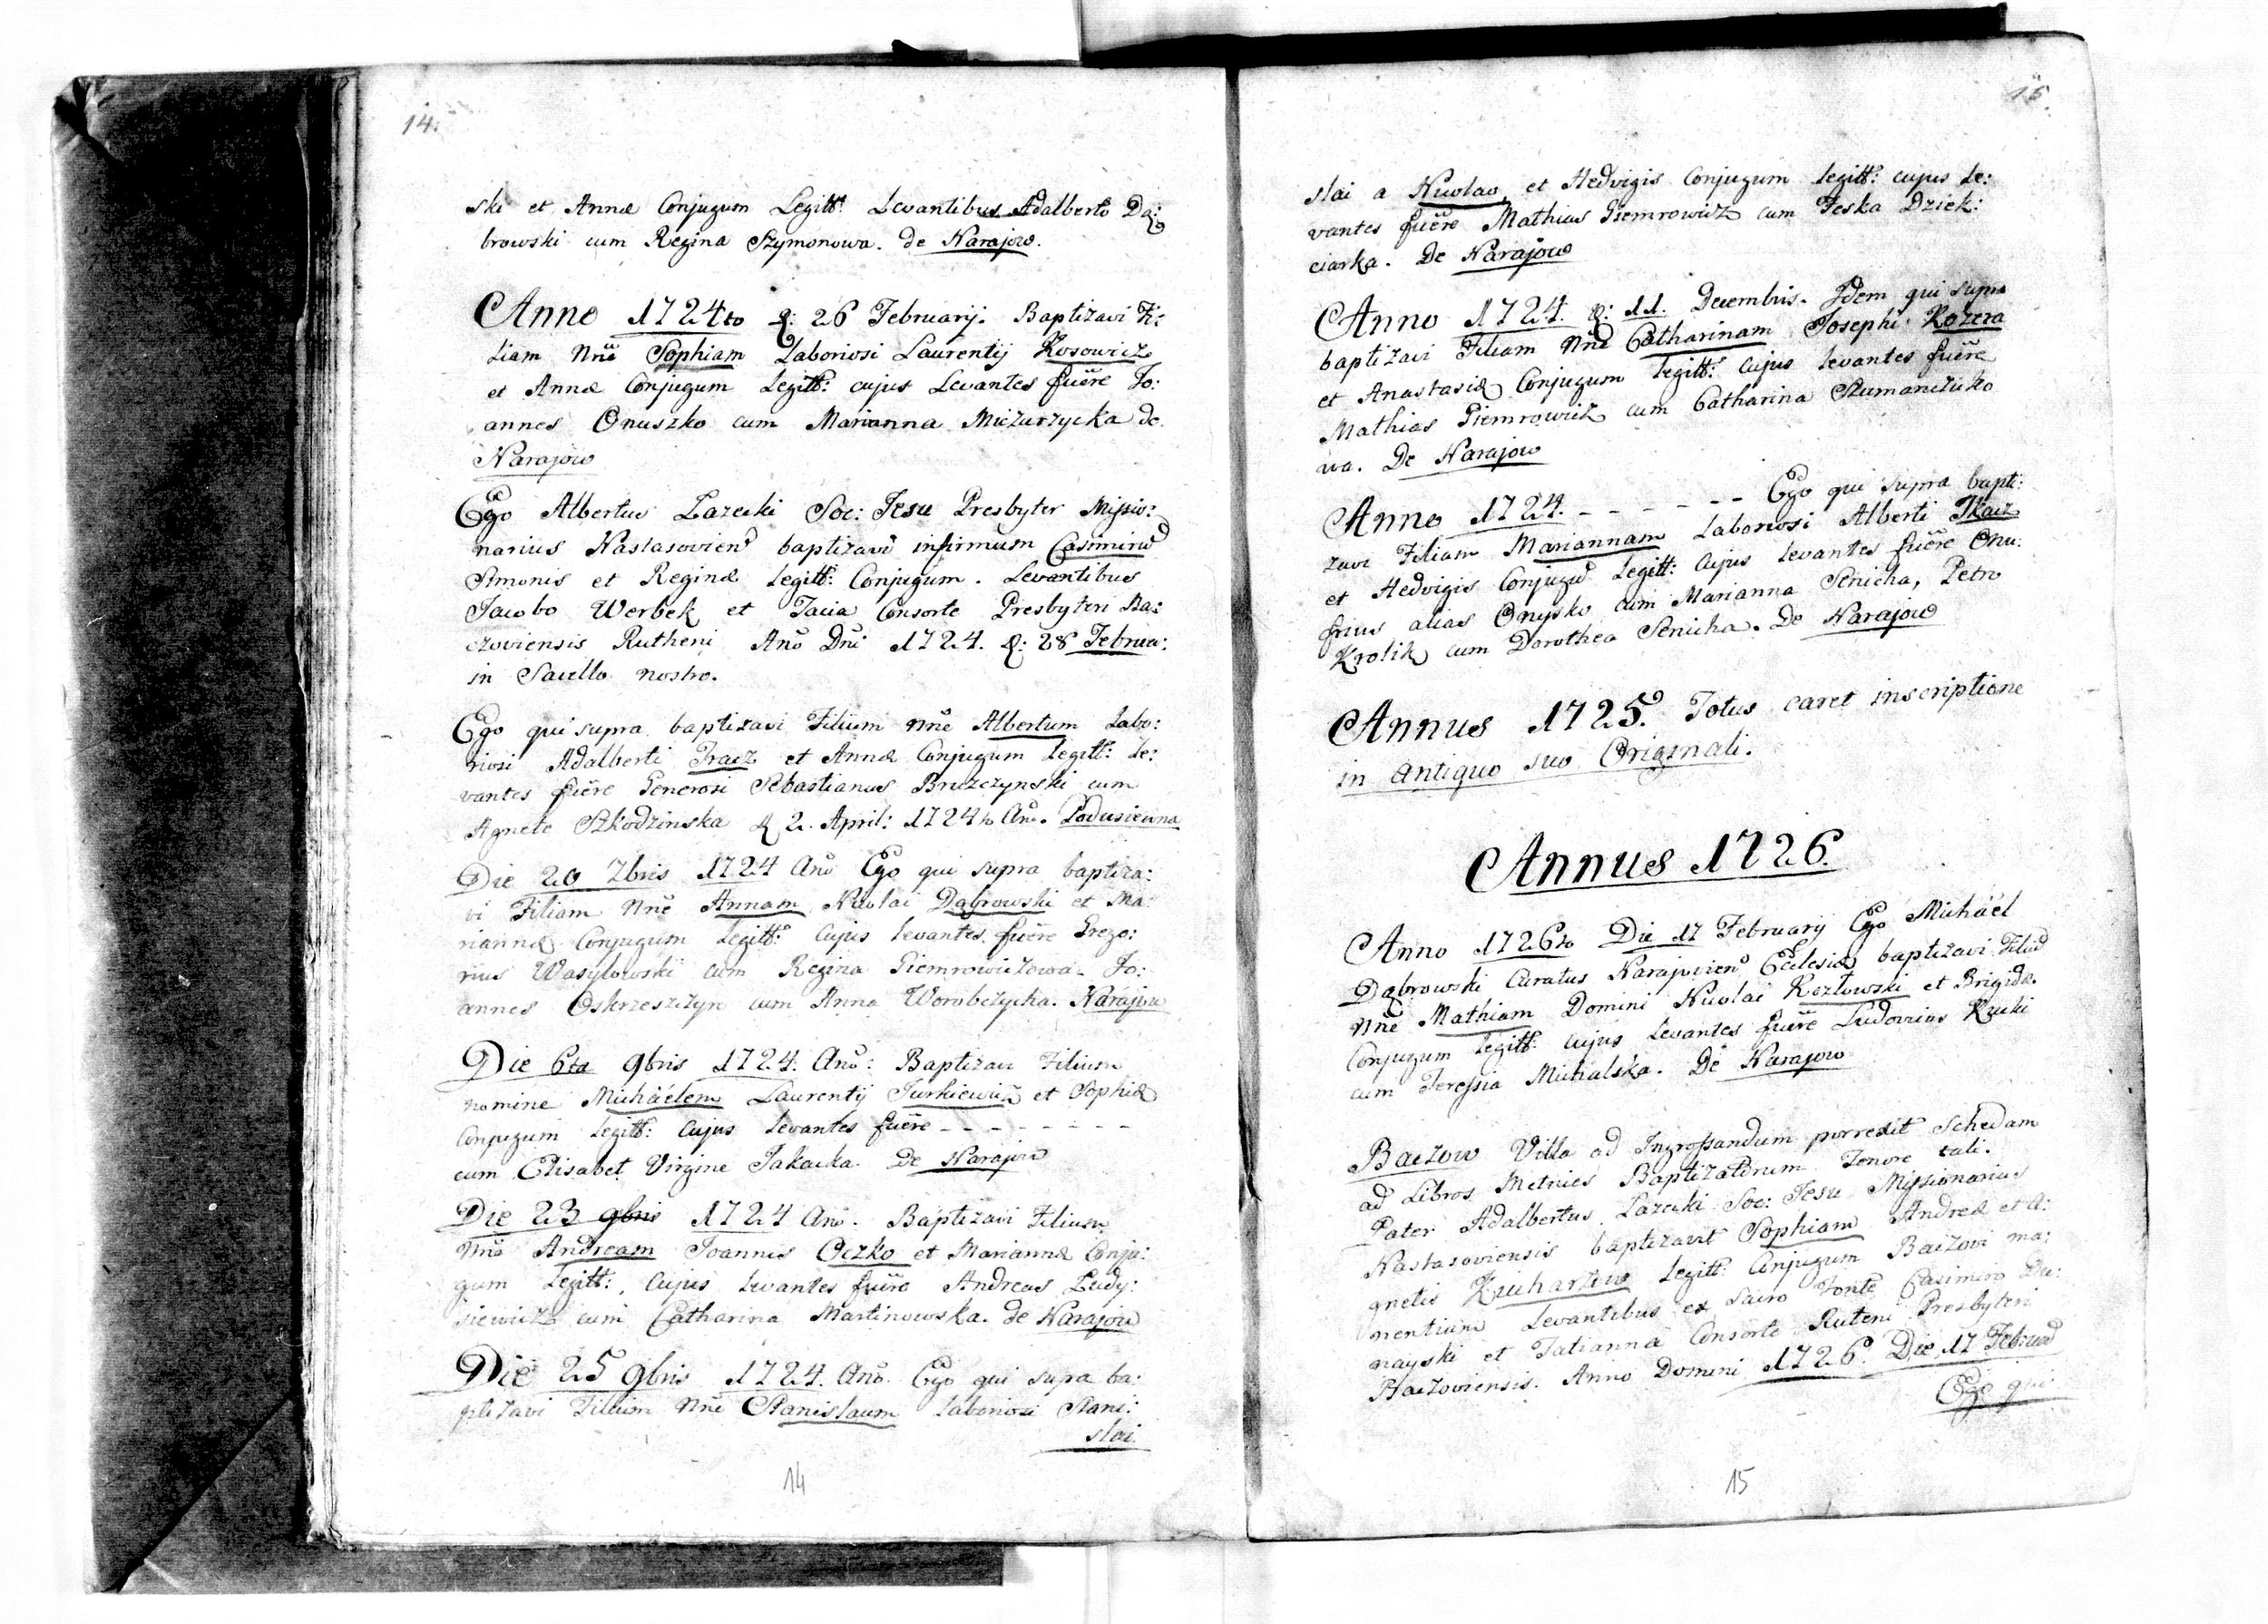 14.
ski et Annæ Conjugum Legitt: Levantibus Adalberto Dą:
browski cum Regina Szymonowa. de Narajow.
Anno 1724to d: 26 February. Baptizavi Fi:
liam Nne Sophiam Laboriosi Laurentij Kosowicz
et Annæ Conjugum Legitt: cujus Levantes fuere Jo:
annes Onuszko cum Marianna Miczurzycka de
Narajow
Ego Albertus Lazecki Soc: Jesu Presbyter Missio:
narius Nastasovien baptizavi infirmum Casimirū
Simonis et Reginæ Legitt: Conjugum. Levantibus
Jacobo Werbek et Tacia Consorte Presbyteri Ba:
czoviensis Rutheni Ano Dni 1724. d: 28 Februa:
in Sacello nostro.
Ego qui supra baptizavi Filium nne Albertum Labo:
riosi Adalberti Tracz et Annæ Conjugum Legitt: Le:
vantes fuere Generosi Sebastianus Bruzczynski cum
Agnete Szkodzinska d 2. April: 1724to Ano. Podusienna
Die 20 7bris 1724 Ano Ego qui supra baptiza:
vi Filiam Nne Annam Nicolai Dąbrowski et Ma:
riannæ Conjugum Legitt: Cujus Levantes fuere Grego:
rius Wasylowski cum Regina Giemrowiczowa. Jo:
annes Oskrzeszczyn cum Anna Worobczycka. Narajow
Die 6ta 9bris 1724. Ano: Baptizavi Filium
nomine Michäelem Laurentij Jurkiewicz et Sophiæ
Conjugum Legitt: Cujus Levantes fuere - - - - - - - -
cum Elisabet Virgine Jakacka. De Narajow
Die 23 9bris 1724 Ano. Baptizavi Filium
Nne Andream Joannis Oczko et Mariannæ Conju:
gum Legitt: Cujus Levantes fuere Andreas Ludy:
siewicz cum Catharina Martinowska. de Narajow
Die 25 9bris 1724. Ano. Ego qui supra ba:
ptizavi Filium Nne Stanislaum Laboriosi Stani:
slai.
14
15.
slai a Nicolao et Hedvigis Conjugum Legitt: cujus Le:
vantes fuere Mathias Giemrowicz cum Teska Dziek:
ciarka. De Narajow
Anno 1724. d: 11. Decembris. Idem qui supra
baptizavi Filiam Nne Catharinam Josephi Kozera
et Anastasiæ Conjugum Legitt: Cujus Levantes fuere
Mathias Giemrowicz cum Catharina Szumanczuko
wa. De Narajow
Anno 1724. - - - - - - Ego qui supra bapti:
zavi Filiam Mariannam Laboriosi Alberti Tkacz
et Hedvigis Conjugū Legitt: Cujus Levantes fuere Onu:
frius alias Onysko cum Marianna Senicha, Petro
Krolik cum Dorothea Senicha. De Narajow
Annus 1725. Totus caret inscriptione
in Antiquo suo Originali.
Annus 1726.
Anno 1726to Die 17 February Ego Michäel
Dąbrowski Curatus Narajovien Ecclesiæ baptizavi Filiū
Nne Mathiam Domini Nicolai Kozlowski et Brigidæ
Conjugum Legitt: cujus Levantes fuere Ludovicus Krucki
cum Teressia Michalska. De Narajow
Baczow Villa ad Ingrossandum porrexit Schedam
ad Libros Metrices Baptizatorum Tenore tali.
Pater Adalbertus Lazecki Soc: Jesu Missionarius
Nastasoviensis baptizavit Sophiam Andreæ et A:
gnetis Kucharzow Legitt: Conjugum Baczovi ma:
nentium Levantibus ex Sacro Fonte Casimiro Du:
nayski et Tatianna Consorte Ruteni Presbyteri
Baczoviensis. Anno Domini 1726. Die 17 Februa
Ego qui
15